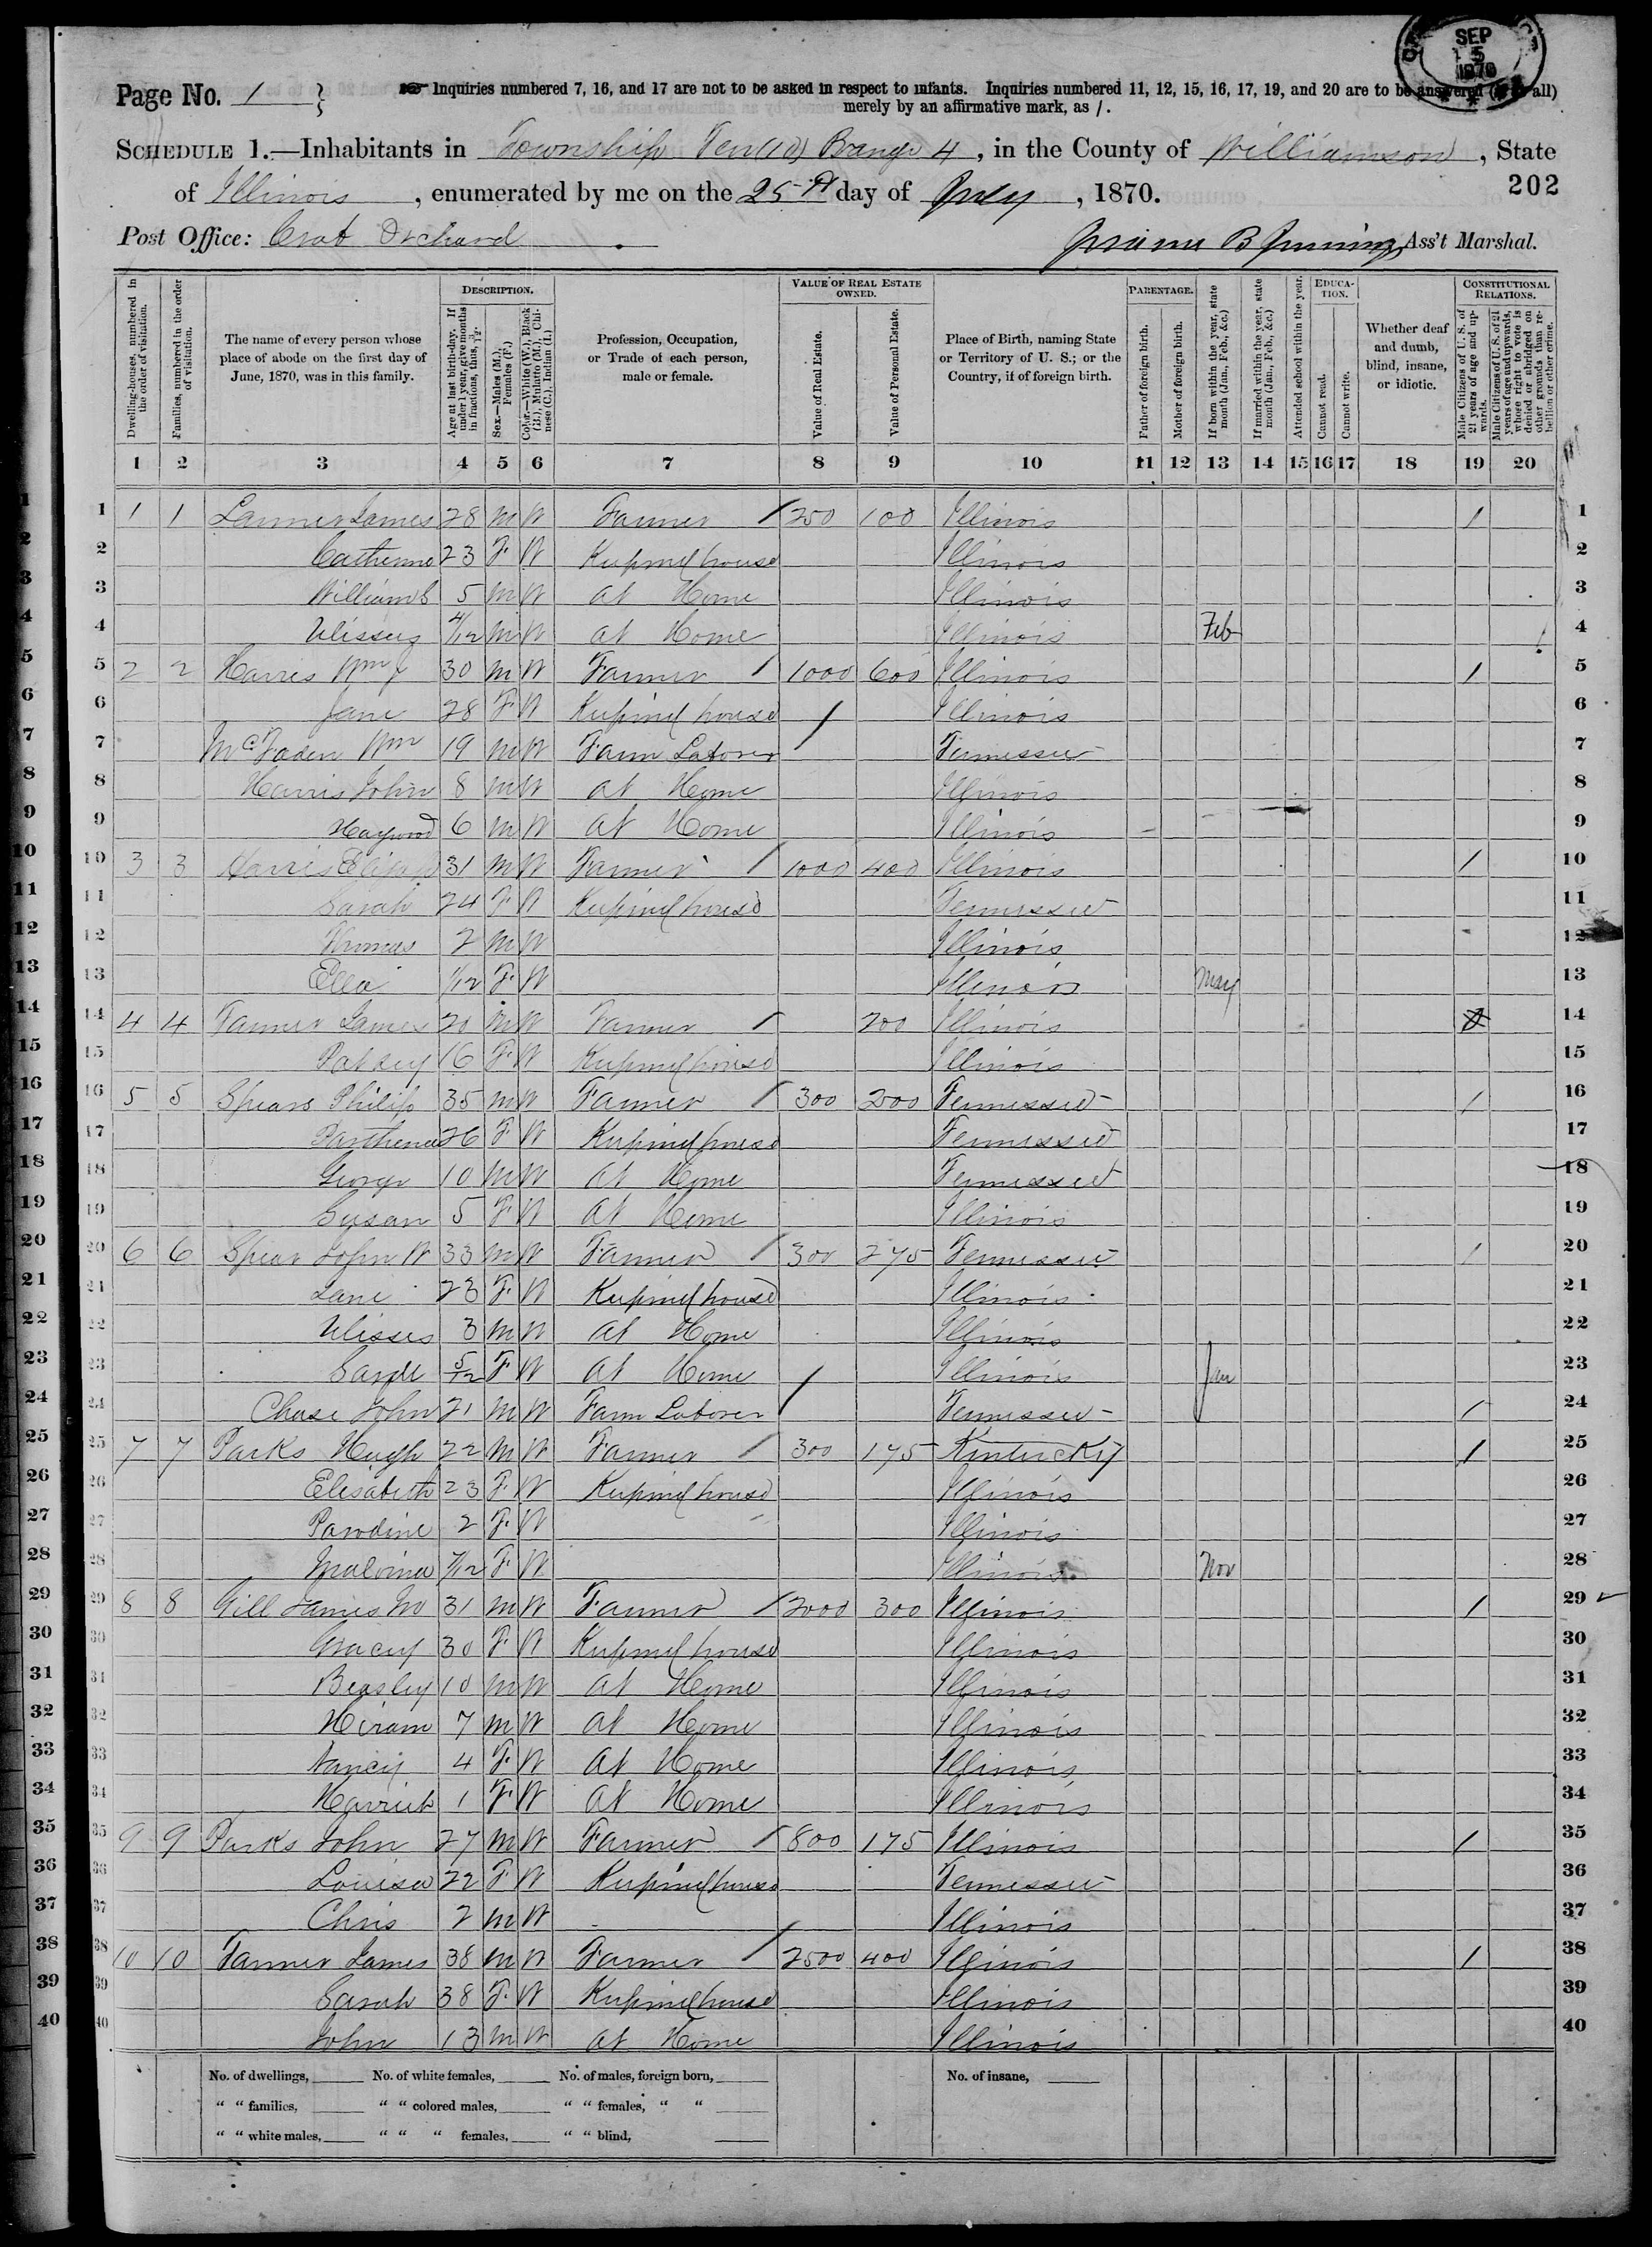 SEP 5 1870
Page No. 1
Inquiries numbered 7, 16, and 17 are not to be asked in respect to infants. Inquiries numbered 11, 12, 15, 16, 17, 19, and 20 are to be answered (if at all)
merely by an affirmative mark, as /.
SCHEDULE 1.—Inhabitants in Township Ten (10) Range 4, in the County of Williamson, State
of Illinois, enumerated by me on the 25th day of July, 1870.
202
Post Office: Crab Orchard
B Ass't Marshal.
Dwelling-houses, numbered in the order of visitation.
Families, numbered in the order of visitation.
The name of every person whose place of abode on the first day of June, 1870, was in this family.
DESCRIPTION.
Age at last birth-day. If under 1 year, give months in fractions, thus, 3/12.
Sex.—Males (M.), Females (F.)
Color.—White (W.), Black (B.), Mulatto (M.), Chinese (C.), Indian (I.)
Profession, Occupation, or Trade of each person, male or female.
VALUE OF REAL ESTATE OWNED.
Value of Real Estate.
Value of Personal Estate.
Place of Birth, naming State or Territory of U. S.; or the Country, if of foreign birth.
PARENTAGE.
Father of foreign birth.
Mother of foreign birth.
If born within the year, state month (Jan., Feb., &c.)
If married within the year, state month (Jan., Feb., &c.)
Attended school within the year.
EDUCATION.
Cannot read.
Cannot write.
Whether deaf and dumb, blind, insane, or idiotic.
CONSTITUTIONAL RELATIONS.
Male Citizens of U. S. of 21 years of age and upwards.
Male Citizens of U. S. of 21 years of age and upwards, whose right to vote is denied or abridged on other grounds than rebellion or other crime.
1 2 3 4 5 6 7 8 9 10 11 12 13 14 15 16 17 18 19 20
1 1 1 James 28 M W Farmer / 250 100 Illinois / 1
2 Catherine 23 F W Keeping house Illinois 2
3 William 5 M W at Home Illinois 3
4 Ulisses 4/12 M W at Home Illinois Feb 4
5 2 2 Harris Wm 30 M W Farmer / 1000 600 Illinois / 5
6 Jane 28 F W Keeping house Illinois 6
7 McFaden Wm 19 M W Farm Laborer / Tennessee 7
8 Harris John 8 M W at Home Illinois 8
9 Haywood 6 M W at Home Illinois 9
10 3 3 Harris Elijah 31 M W Farmer / 1000 400 Illinois / 10
11 Sarah 24 F W Keeping house Tennessee 11
12 Thomas 2 M W Illinois 12
13 Ella 1/12 F W Illinois May 13
14 4 4 Tanner James 20 M W Farmer / 200 Illinois 14
15 Patsey 16 F W Keeping house Illinois 15
16 5 5 Spears Philip 35 M W Farmer / 300 200 Tennessee / 16
17 Parthenia 26 F W Keeping house Tennessee 17
18 George 10 M W at Home Tennessee 18
19 Susan 5 F W at Home Illinois 19
20 6 6 Spear John W 33 M W Farmer / 300 275 Tennessee / 20
21 Jane 23 F W Keeping house Illinois 21
22 Ulisses 3 M W at Home Illinois 22
23 5/12 F W at Home Illinois Jan 23
24 Chase John 21 M W Farm Laborer / Tennessee / 24
25 7 7 Parks Hugh 22 M W Farmer / 300 175 Kentucky / 25
26 Elisabeth 23 F W Keeping house Illinois 26
27 Parodine 2 F W Illinois 27
28 Malvina 7/12 F W Illinois Nov 28
29 8 8 Gill James 31 M W Farmer / 2000 300 Illinois / 29
30 Gracey 30 F W Keeping house Illinois 30
31 Beasley 10 M W at Home Illinois 31
32 Hiram 7 M W at Home Illinois 32
33 Nancy 4 F W at Home Illinois 33
34 Harriet 1 F W at Home Illinois 34
35 9 9 Parks John 27 M W Farmer / 800 175 Illinois / 35
36 Louisa 22 F W Keeping house Tennessee 36
37 Chris 2 M W Illinois 37
38 10 10 Tanner James 38 M W Farmer / 2500 400 Illinois / 38
39 Sarah 38 F W Keeping house Illinois 39
40 John 13 M W at Home Illinois 40
No. of dwellings, No. of white females, No. of males, foreign born, No. of insane,
" " families, " " colored males, " " females, " "
" " white males, " " " females, " " blind,